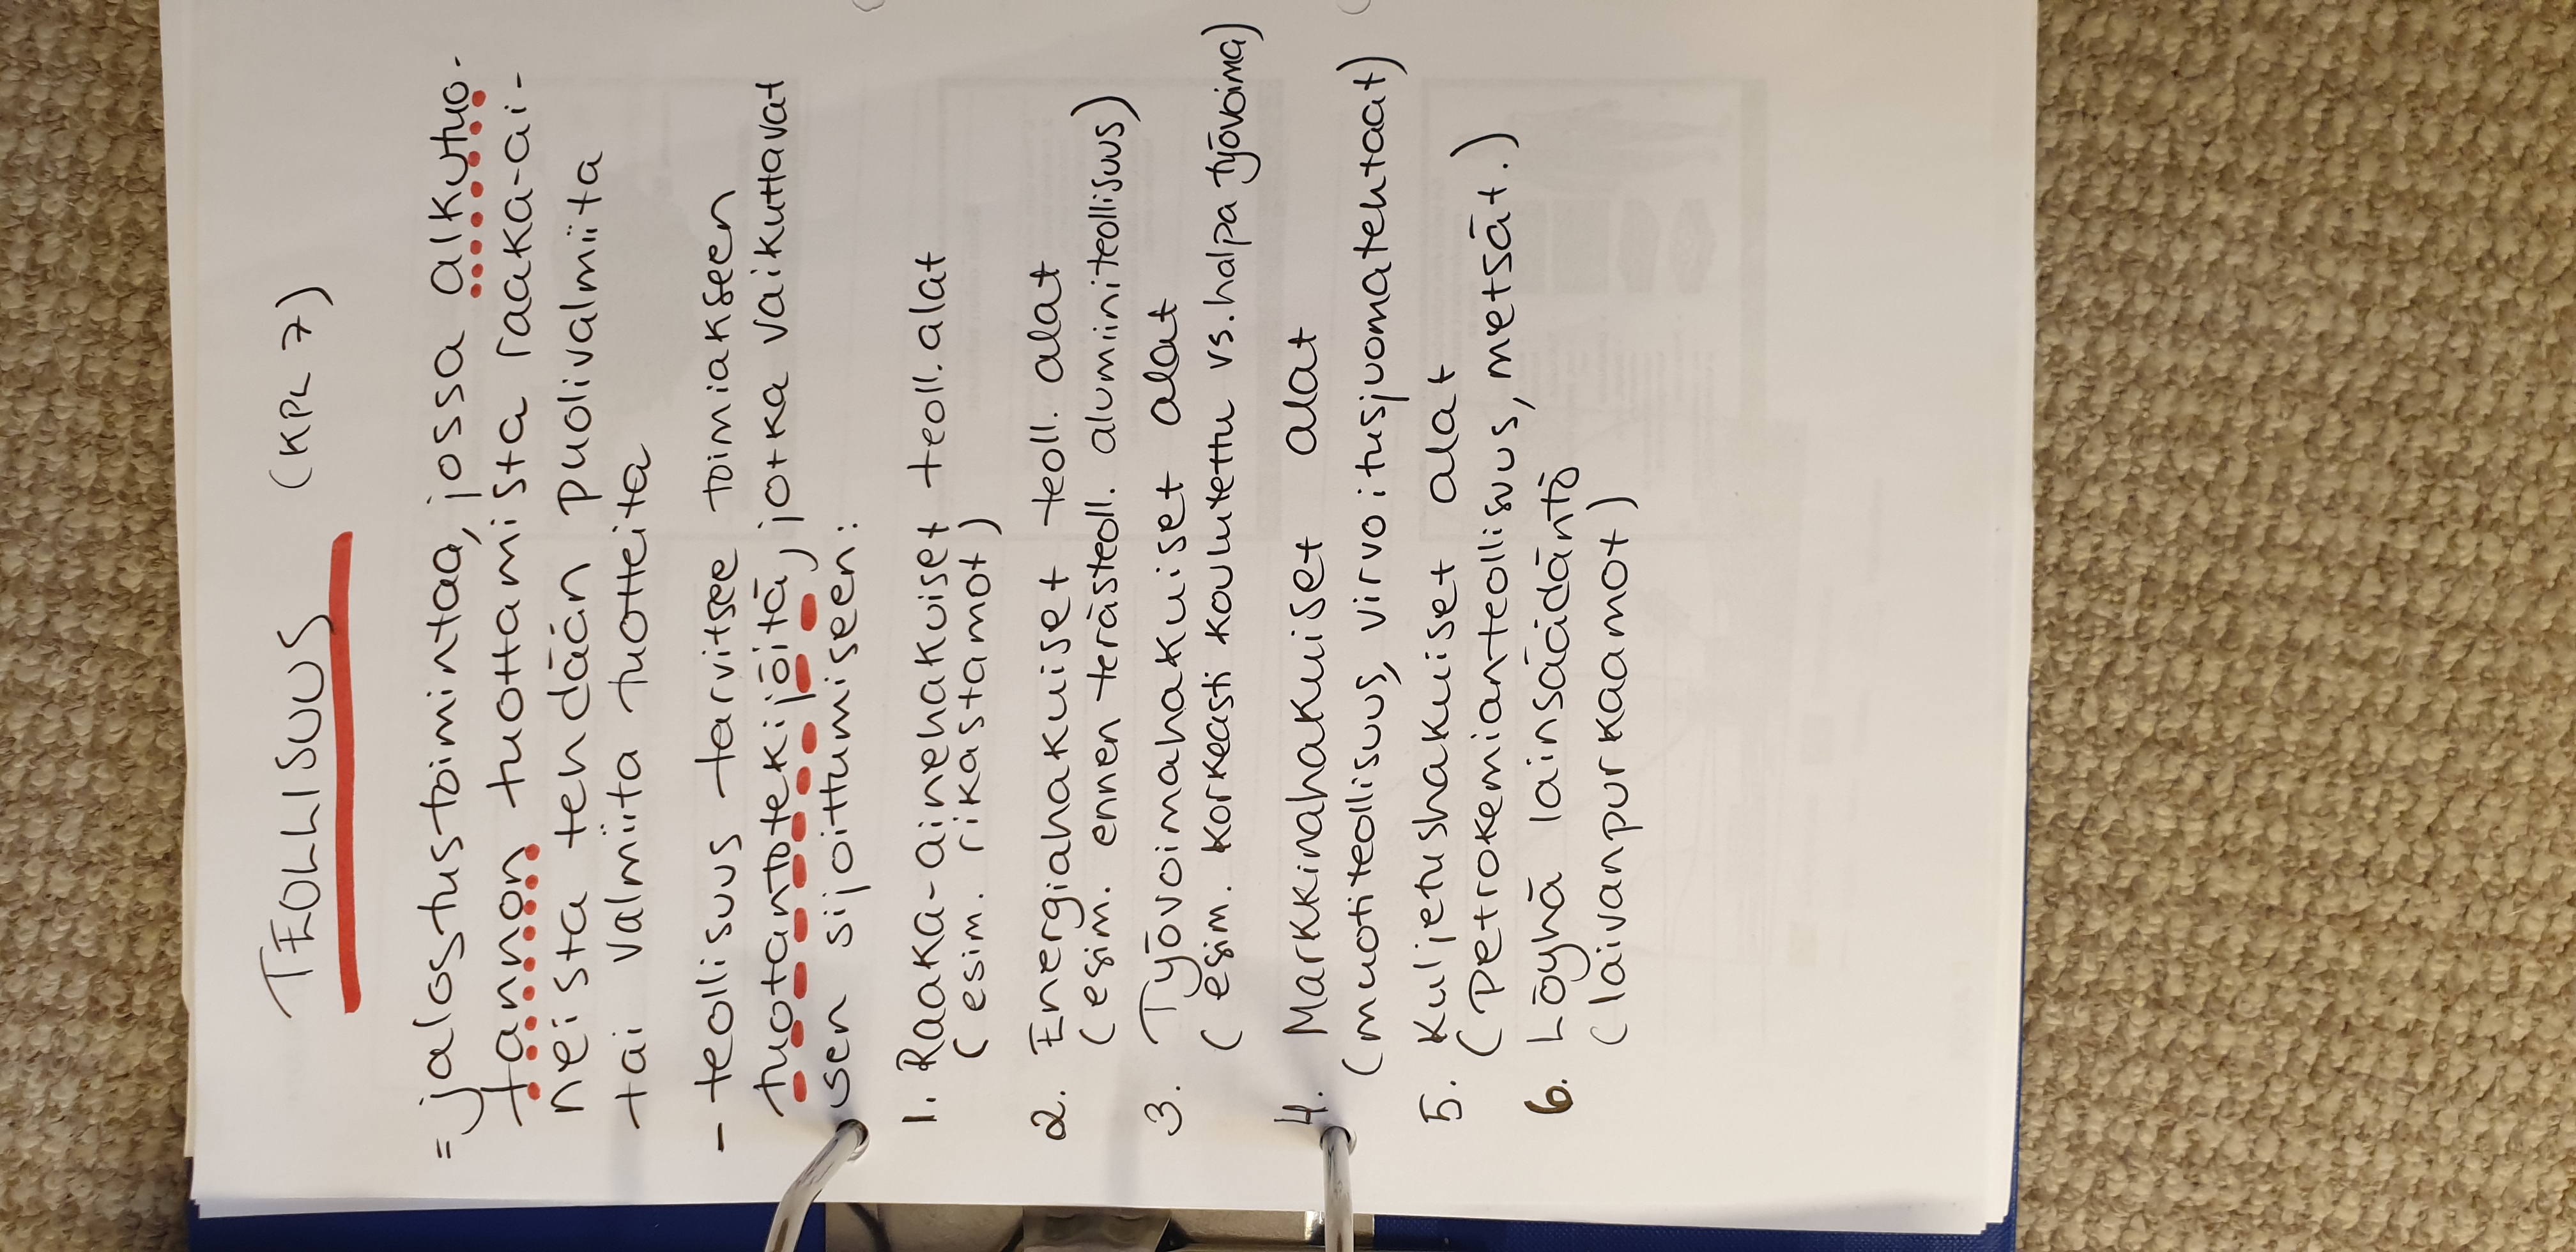 TEOLLISUUS (KPL 7)
= jalostustoimintaa, jossa alkutuo-
tannon tuottamista raaka-ai-
neista tehdään puolivalmiita
tai valmiita tuotteita
- teollisuus tarvitsee toimiakseen
tuotantotekijöitä, jotka vaikuttavat
sen sijoittumiseen:
1. Raaka-ainehakuiset teoll.alat
(esim. rikastamot)
2. Energiahakuiset teoll. alat
(esim. ennen terästeoll. alumiiniteollisuus)
3. Työvoimahakuiset alat
(esim. korkeasti koulutettu vs. halpa työvoima)
4. Markkinahakuiset alat
(muotiteollisuus, virvoitusjuomatehtaat)
5. Kuljetushakuiset alat
(petrokemianteollisuus, metsät.)
6. Löyhä lainsäädäntö
(laivanpurkaamot)